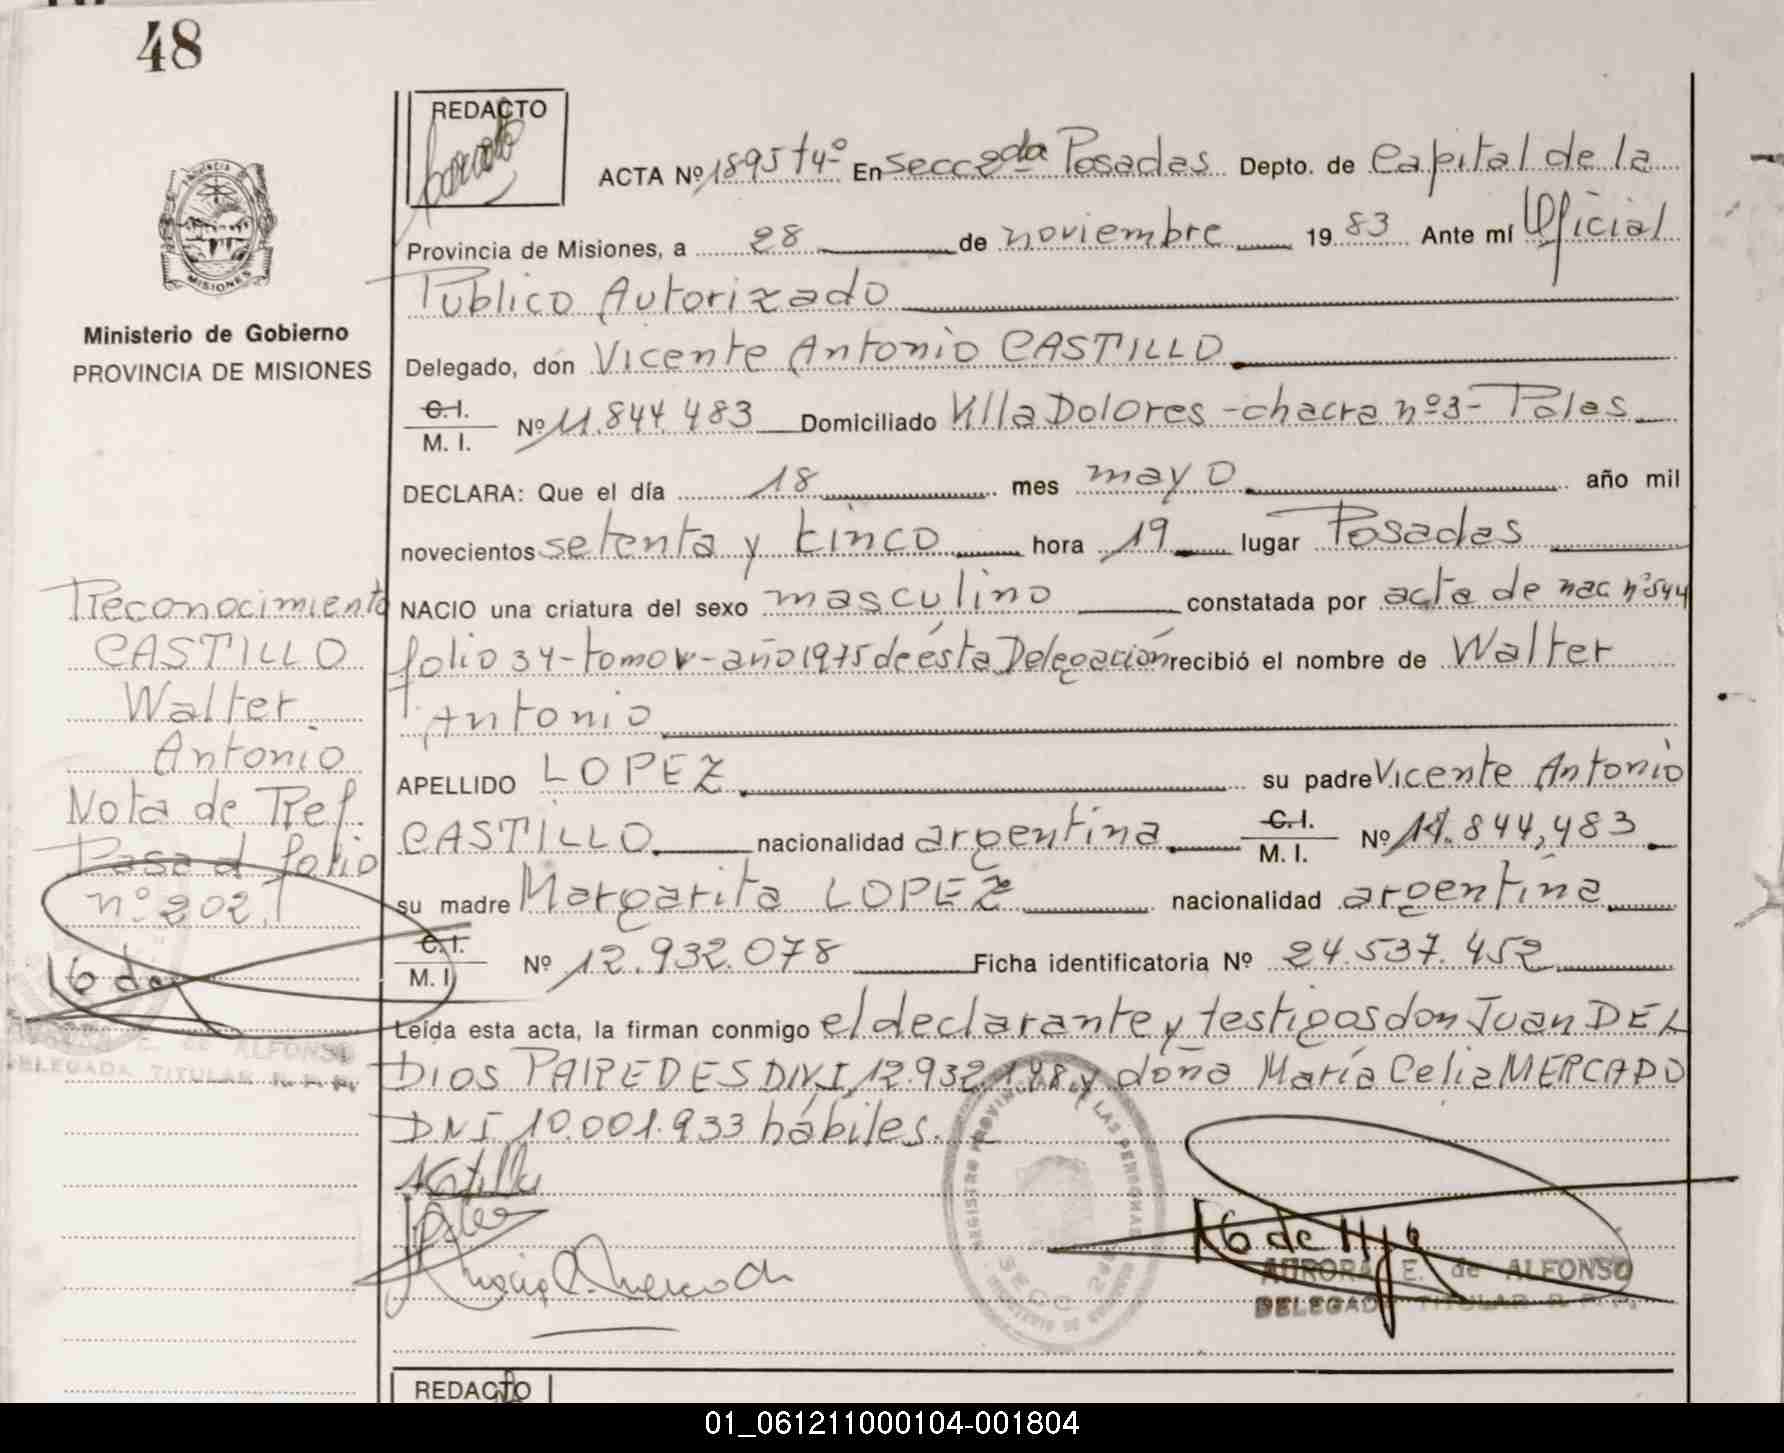 48
REDACTO
ACTA Nº 1895 t4º En Secc 2da Posadas Depto. de Capital de la
Provincia de Misiones, a 28 de noviembre 1983 Ante mí Oficial
Publico Autorizado
PROVINCIA
MISIONES
Ministerio de Gobierno
PROVINCIA DE MISIONES
Delegado, don Vicente Antonio CASTILLO
C.I.
M. I. Nº 11.844.483 Domiciliado Villa Dolores - chacra nº3 - Pdas
DECLARA: Que el día 18 mes mayo año mil
novecientos setenta y cinco hora 19 lugar Posadas
NACIO una criatura del sexo masculino constatada por acta de nac nº 544
folio 34 - tomo V - año 1975 de ésta Delegación recibió el nombre de Walter
Antonio
APELLIDO LOPEZ su padre Vicente Antonio
CASTILLO nacionalidad argentina C.I. M. I. Nº 11.844,483
su madre Margarita LOPEZ nacionalidad argentina
C.I.
M. I. Nº 12.932.078 Ficha identificatoria Nº 24.537.452
Leída esta acta, la firman conmigo el declarante y testigos don Juan DEL
DIOS PAREDES DNI 12.932.198 y doña María Celia MERCADO
DNI 10.001.933 hábiles.
Reconocimiento
CASTILLO
Walter
Antonio
Nota de Ref.
Pasa al folio
nº 202
AURORA E. de ALFONSO
DELEGADA TITULAR R. P. P.
REGISTRO PROVINCIAL DE LAS PERSONAS
SECC 2da
AURORA E. de ALFONSO
DELEGADA TITULAR R. P. P.
REDACTO
01_061211000104-001804